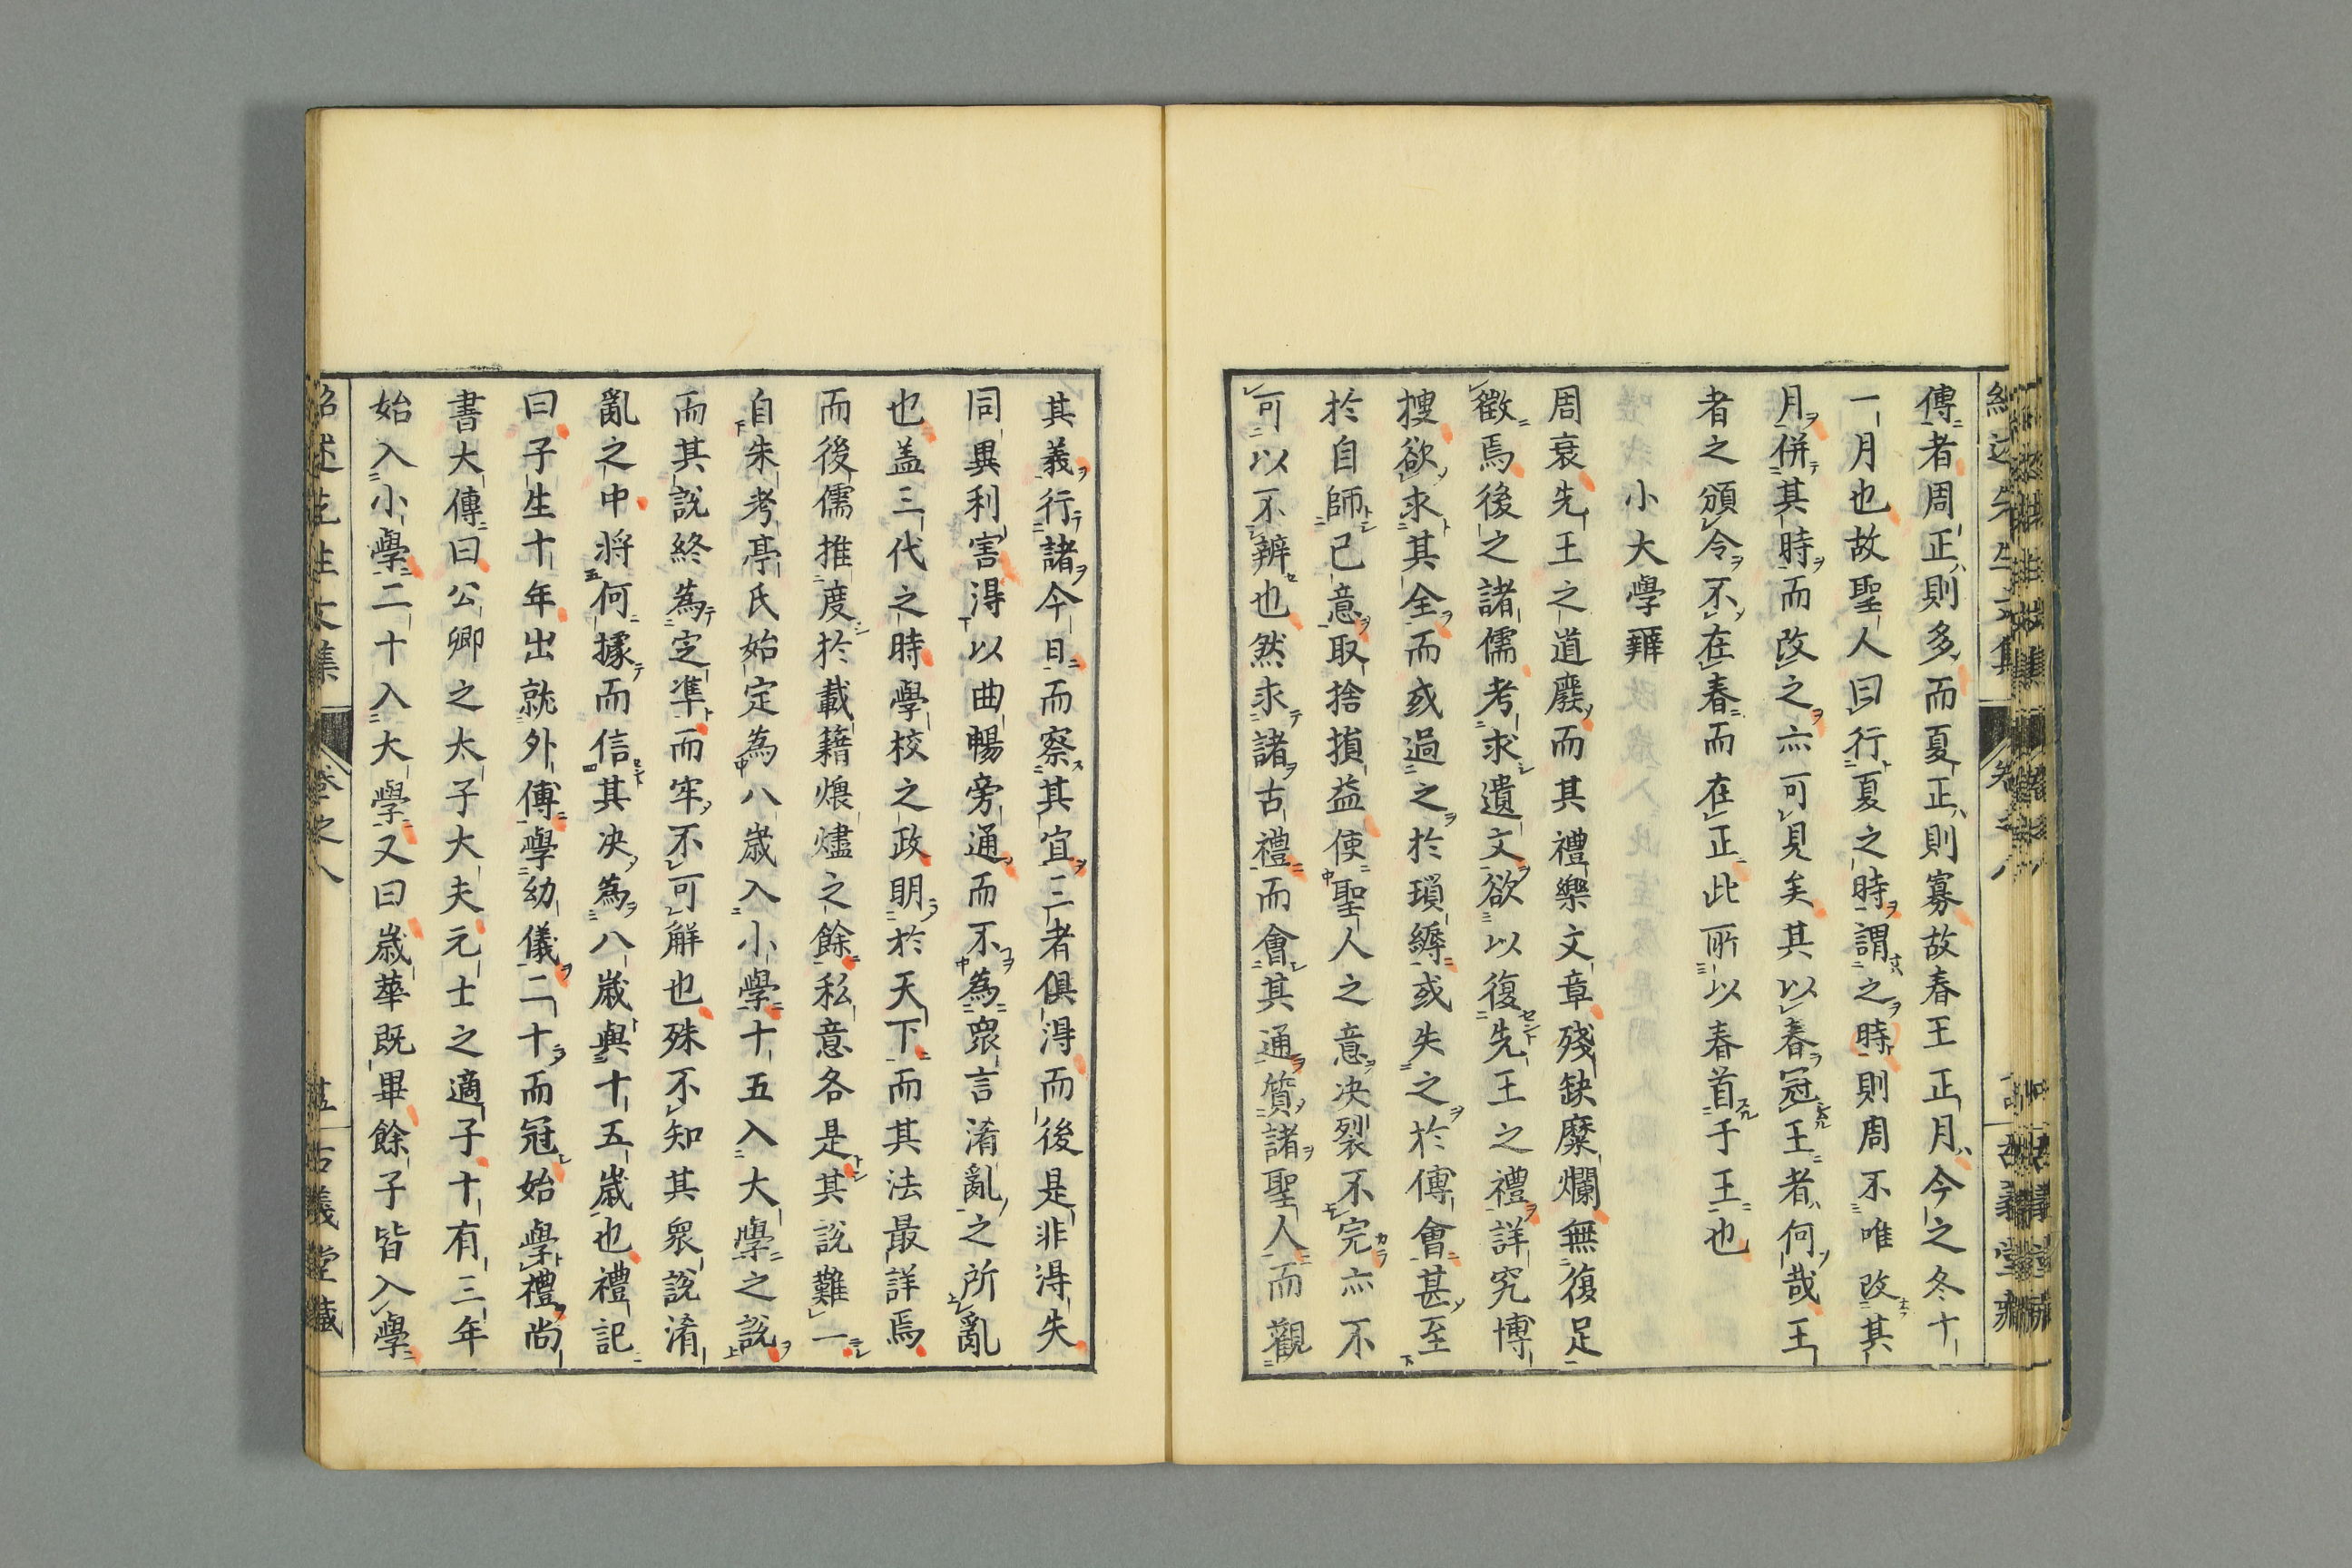 傳者周正則多而夏正則寡故春王正月今之冬十
一月也故聖人曰行夏之時謂之時則周不唯改其
月併其時而改之亦可見矣其以春冠王者何哉王
者之頒令不在春而在正此所以春首于王也
小大學辨
周衰先王之道廢而其禮樂文章殘缺糜爛無復足
徵焉後之諸儒考求遺文欲以復先王之禮詳究博
搜欲求其全而或過之於瑣縟或失之於傳會甚至
於自師己意取捨損益使聖人之意决裂不完亦不
可以不辨也然求諸古禮而會其通質諸聖人而觀
其義行諸今日而察其宜三者俱得而後是非得失
同異利害得以曲暢旁通而不為衆言淆亂之所亂
也盖三代之時學校之政明於天下而其法最詳焉
而後儒推度於載籍煨燼之餘私意各是其說難一
自朱考亭氏始定為八歳入小學十五入大學之說
而其說終為定準而牢不可解也殊不知其衆說淆
亂之中將何據而信其决為八歳與十五歳也禮記
曰子生十年出就外傅學幼儀二十而冠始學禮尚
書大傳曰公卿之太子大夫元士之適子十有三年
始入小學二十入大學又曰歳華既畢餘子皆入學
紹述先生文集 卷之八 古義堂藏